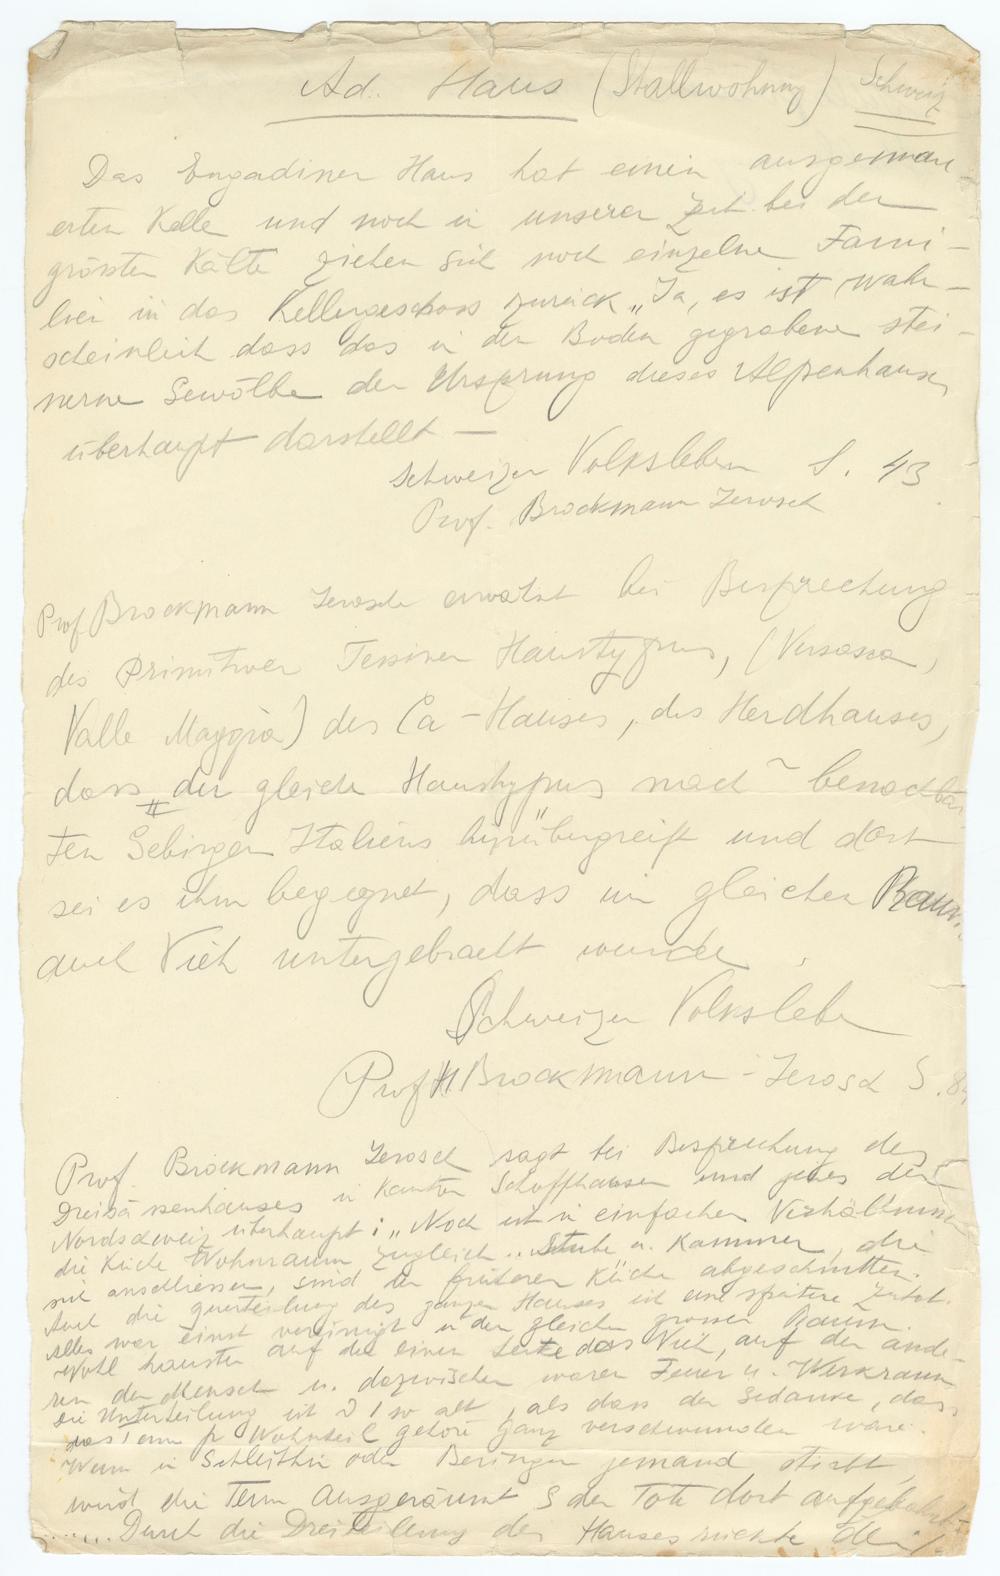 Ad. Haus (Stallwohnung) Schweiz
Das Engadiner Haus hat einen ausgemau-
erten Keller und noch in unserer Zeit bei der
grössten Kälte ziehen sich noch einzelne Fami-
lien in das Kellergeschoss zurück „Ja, es ist wahr-
scheinlich dass das in den Boden gegrabene stei-
nerne Gewölbe den Ursprung dieses Alpenhauses
überhaupt darstellt —
Schweizer Volksleben S. 43
Prof. Brockmann Jerosch
Prof Brockmann Jerosch erwähnt bei Besprechung
des Primitiven Tessiner Haustypus, (Versasca,
Valle Maggia) des Ca-Hauses, des Herdhauses,
dass der gleiche Haustypus nach benachbar
ten Gebirgen Italiens hinübergreift und dort
sei es ihm begegnet, dass im gleichen Raum
auch Vieh untergebracht wurde.
Schweizer Volksleben
Prof H Brockmann-Jerosch S.
Prof. Brockmann Jerosch sagt bei Besprechung des
Dreisässenhauses in Kanton Schaffhausen und jenes der
Nordschweiz überhaupt: „Noch ist in einfachen Verhältnissen
die Küche Wohnraum zugleich.. Stube u. Kammer, die
sich anschliessen, sind der früheren Küche abgeschnitten.
Auch die querteilung des ganzen Hauses ist eine spätere Zutat.
Alles war einst vereinigt in den gleichen grossen Raum.
Wohl hauste auf der einen Seite das Vieh, auf der ande-
ren der Mensch u. dazwischen waren Feuer u. Werkraum
Die Unterteilung ist so alt, als dass der Gedanke, dass
das Tenn Wohnteil gehöre ganz verschwunden wäre.
Wenn in Schleithin oder Beringen jemand stirbt,
wird die Tenn ausgeräumt & der Tote dort aufgebahrt.
...... Durch die Dreiteilung des Hauses